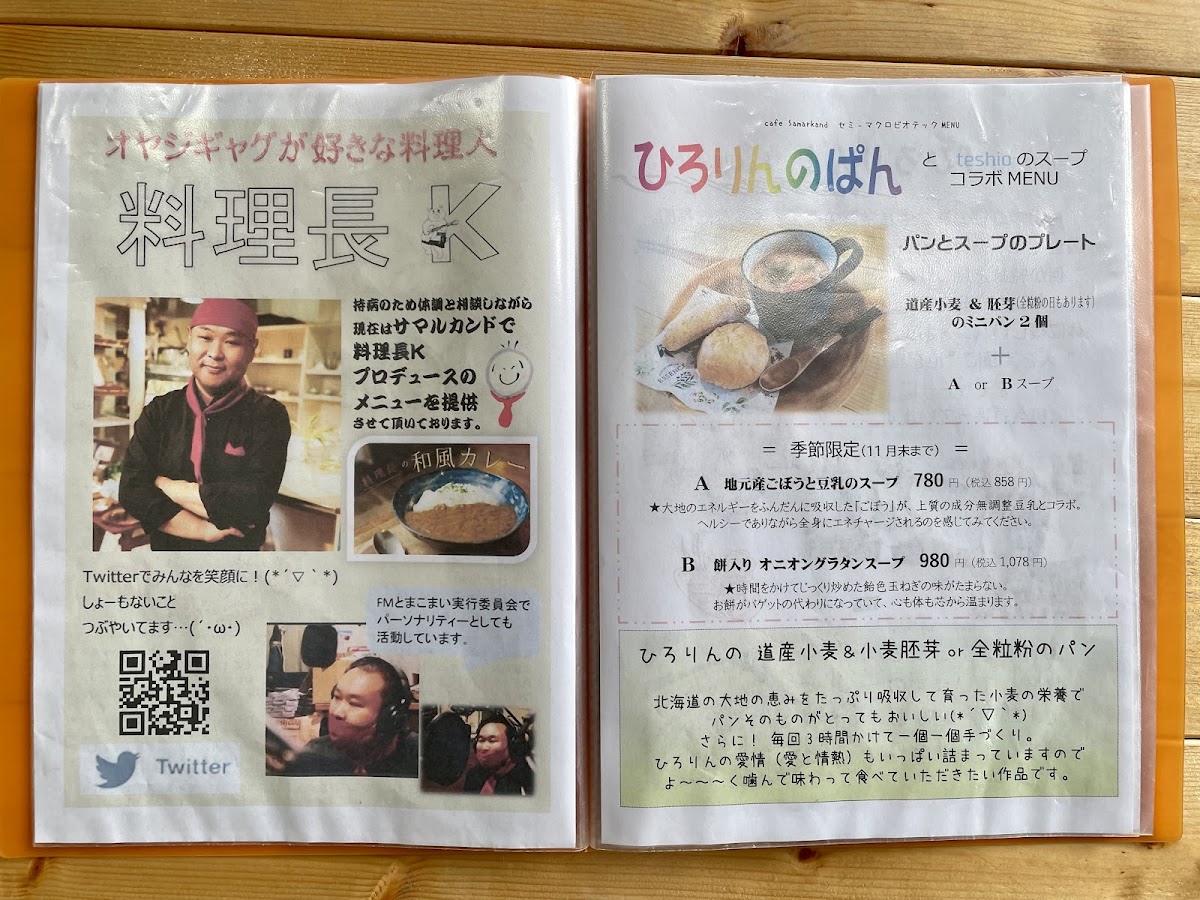 オヤジギャグが好きな料理人
料理長 K
持病のため体調と相談しながら
現在はサマルカンドで
料理長K
プロデュースの
メニューを提供
させて頂いております。
料理長の和風カレー
Twitterでみんなを笑顔に！(*´▽｀*)
しょーもないこと
つぶやいてます…(´･ω･)
FMとまこまい実行委員会で
パーソナリティーとしても
活動しています。
Twitter
cafe Samarkand セミ-マクロビオテックMENU
ひろりんのぱん と teshioのスープ
コラボMENU
パンとスープのプレート
道産小麦 & 胚芽(全粒粉の日もあります)
のミニパン2個
＋
A or Bスープ
＝ 季節限定(11月末まで) ＝
A 地元産ごぼうと豆乳のスープ 780円（税込858円）
★大地のエネルギーをふんだんに吸収した「ごぼう」が、上質の成分無調整豆乳とコラボ。
ヘルシーでありながら全身にエネチャージされるのを感じてみてください。
B 餅入り オニオングラタンスープ 980円（税込1,078円）
★時間をかけてじっくり炒めた飴色玉ねぎの味がたまらない。
お餅がバゲットの代わりになっていて、心も体も芯から温まります。
ひろりんの 道産小麦&小麦胚芽 or 全粒粉のパン
北海道の大地の恵みをたっぷり吸収して育った小麦の栄養で
パンそのものがとってもおいしい(*´▽｀*)
さらに！ 毎回3時間かけて一個一個手づくり。
ひろりんの愛情（愛と情熱）もいっぱい詰まっていますので
よ～～～く噛んで味わって食べていただきたい作品です。